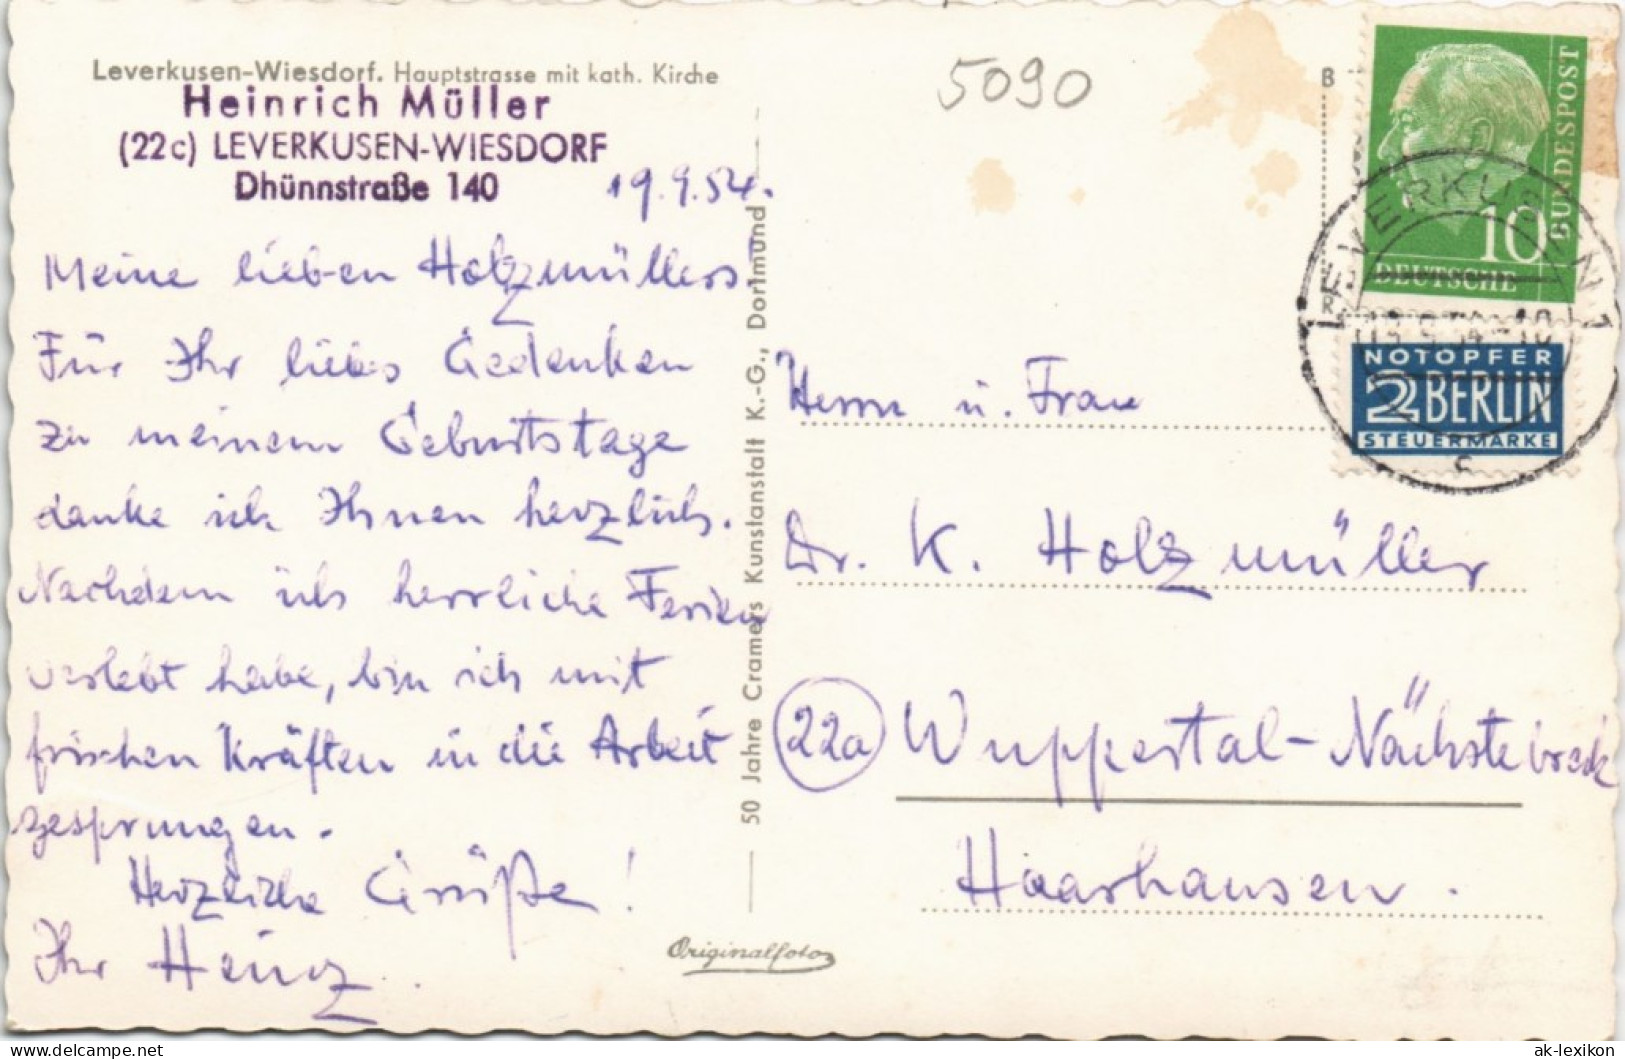 Leverkusen-Wiesdorf. Hauptstrasse mit kath. Kirche
Heinrich Müller
(22c) LEVERKUSEN-WIESDORF
Dhünnstraße 140
19.9.54.
Meine lieben Holzmüllers
Für Ihr liebes Gedenken
zu meinem Geburtstage
danke ich Ihnen herzlich.
Nachdem ich herrliche Ferien
verlebt habe, bin ich mit
frischen Kräften in die Arbeit
gesprungen.
Herzliche Grüße!
Ihr Heinz.
50 Jahre Cramers Kunstanstalt K.-G., Dortmund
Originalfoto
5090
B
BUNDESPOST
10
DEUTSCHE
LEVERKUSEN 1
NOTOPFER
2 BERLIN
STEUERMARKE
Herrn u. Frau
Dr. K. Holzmüller
22a Wuppertal-Nächstebreck
Haarhausen.
www.ansichtskartenversand.com
ak-lexikon